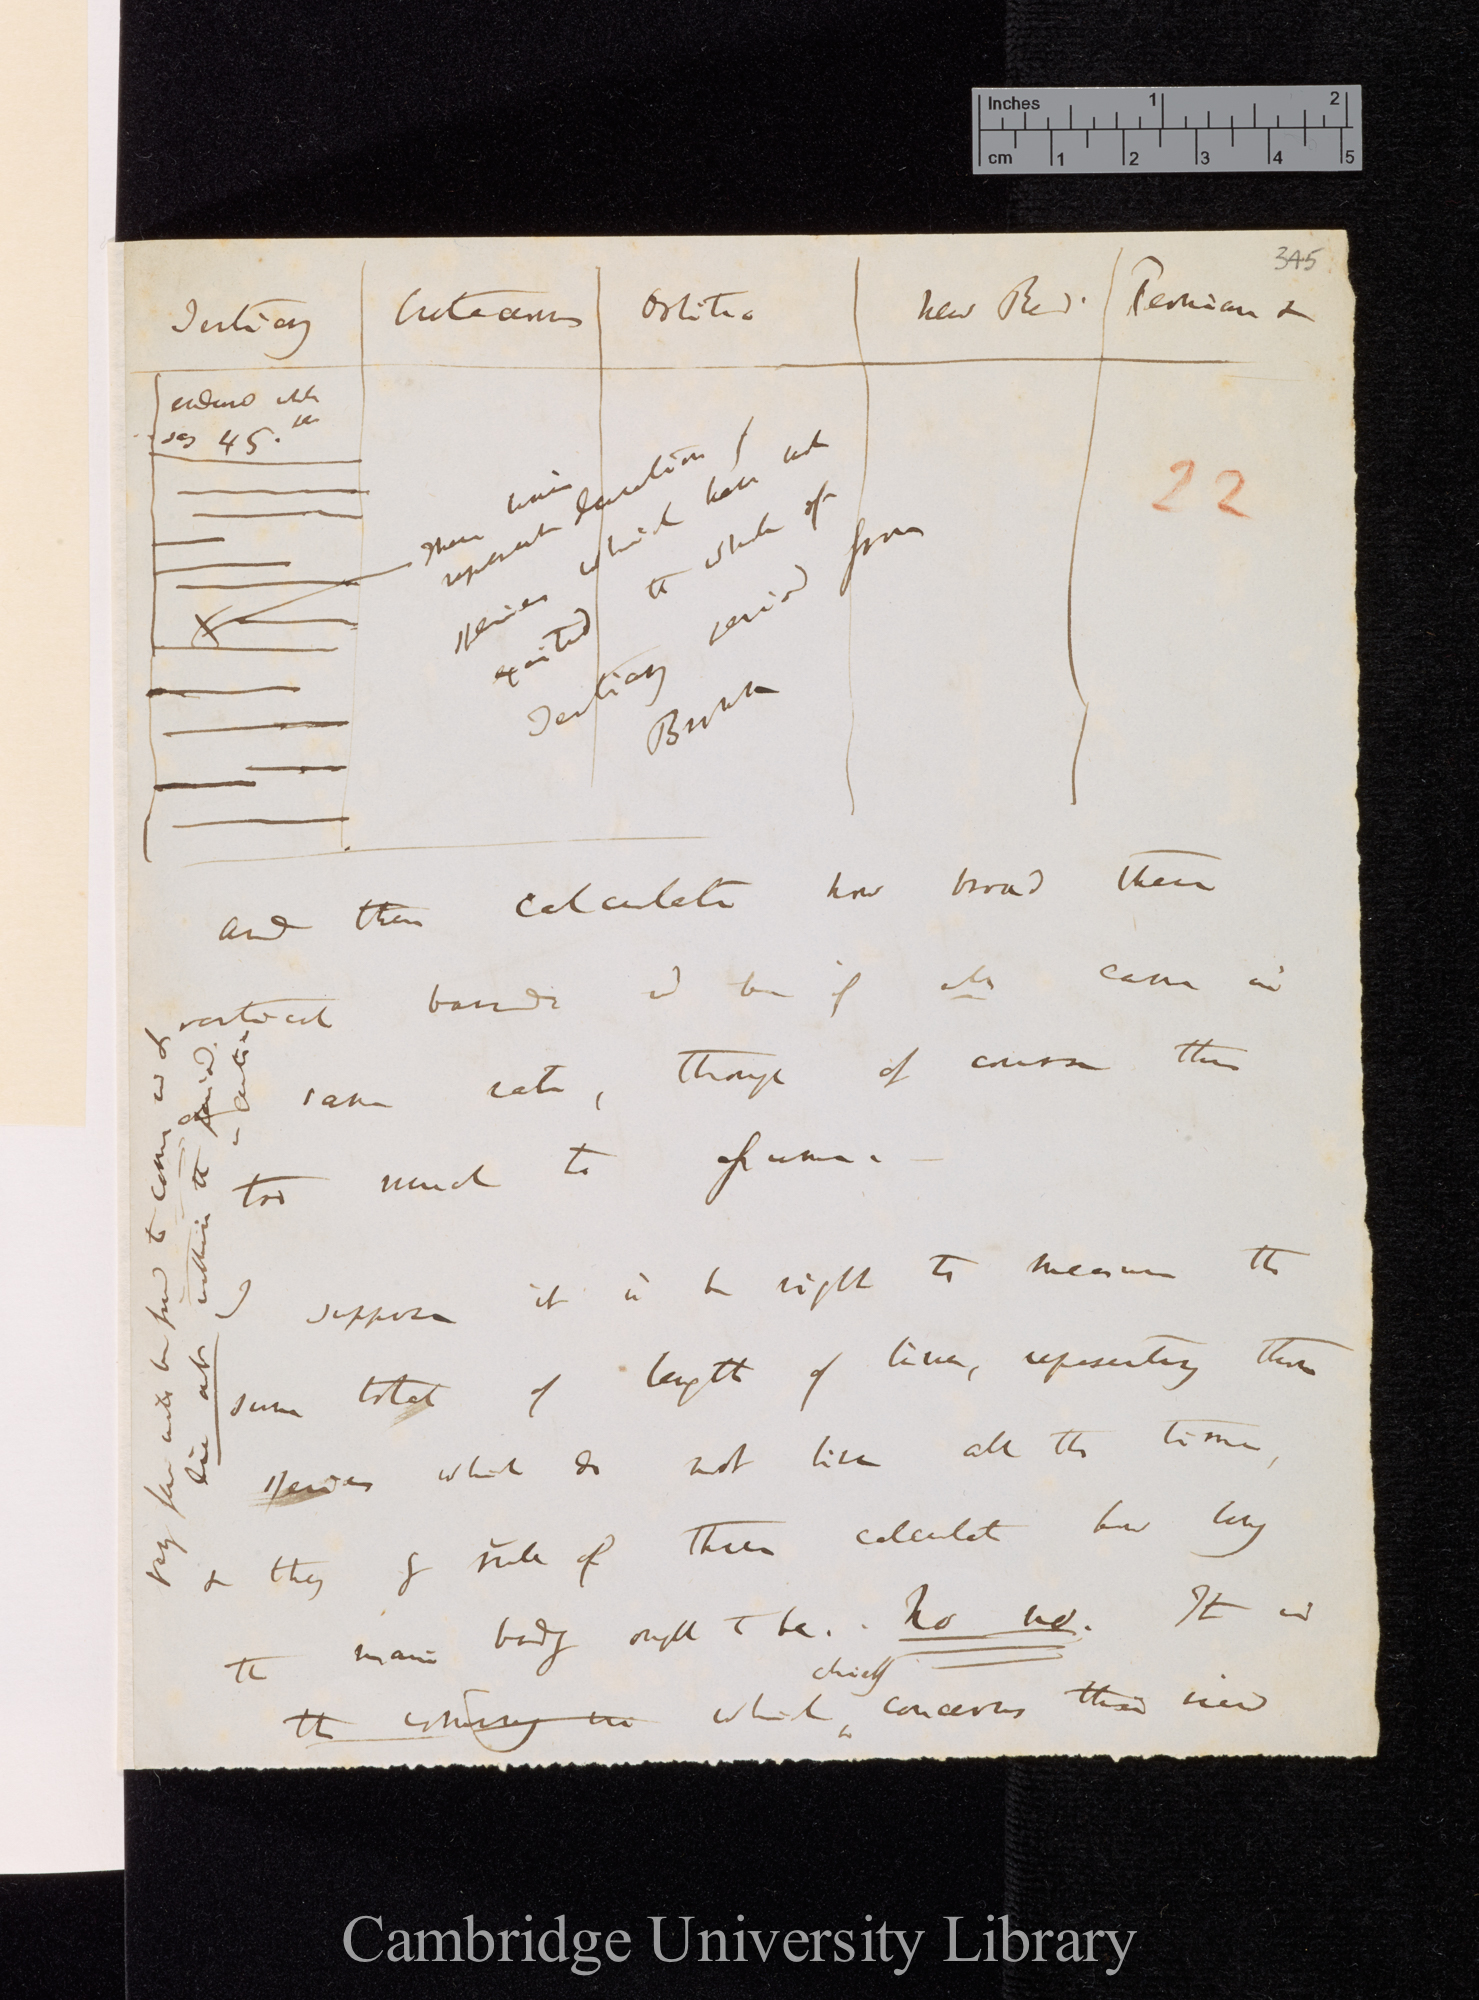 Inches 1 2
cm 1 2 3 4 5
345
Tertiary Cretaceous Oolitic New Red. Permian &
22
say 45.
These lines
represent duration of
species which have not
existed the whole of
Tertiary period from
Bronn
and then calculate how broad these
vertical bands wd be if all came in
same rate, though of course this
too much to assume. —
suppose it wd be right to measure the
sum total of length of lines, representing those
species which do not live all the time,
& then calculate how long
the main body ought to be. No no. It is
chiefly
the which concerns this view
very few wd be found to come in &
die out within the period.